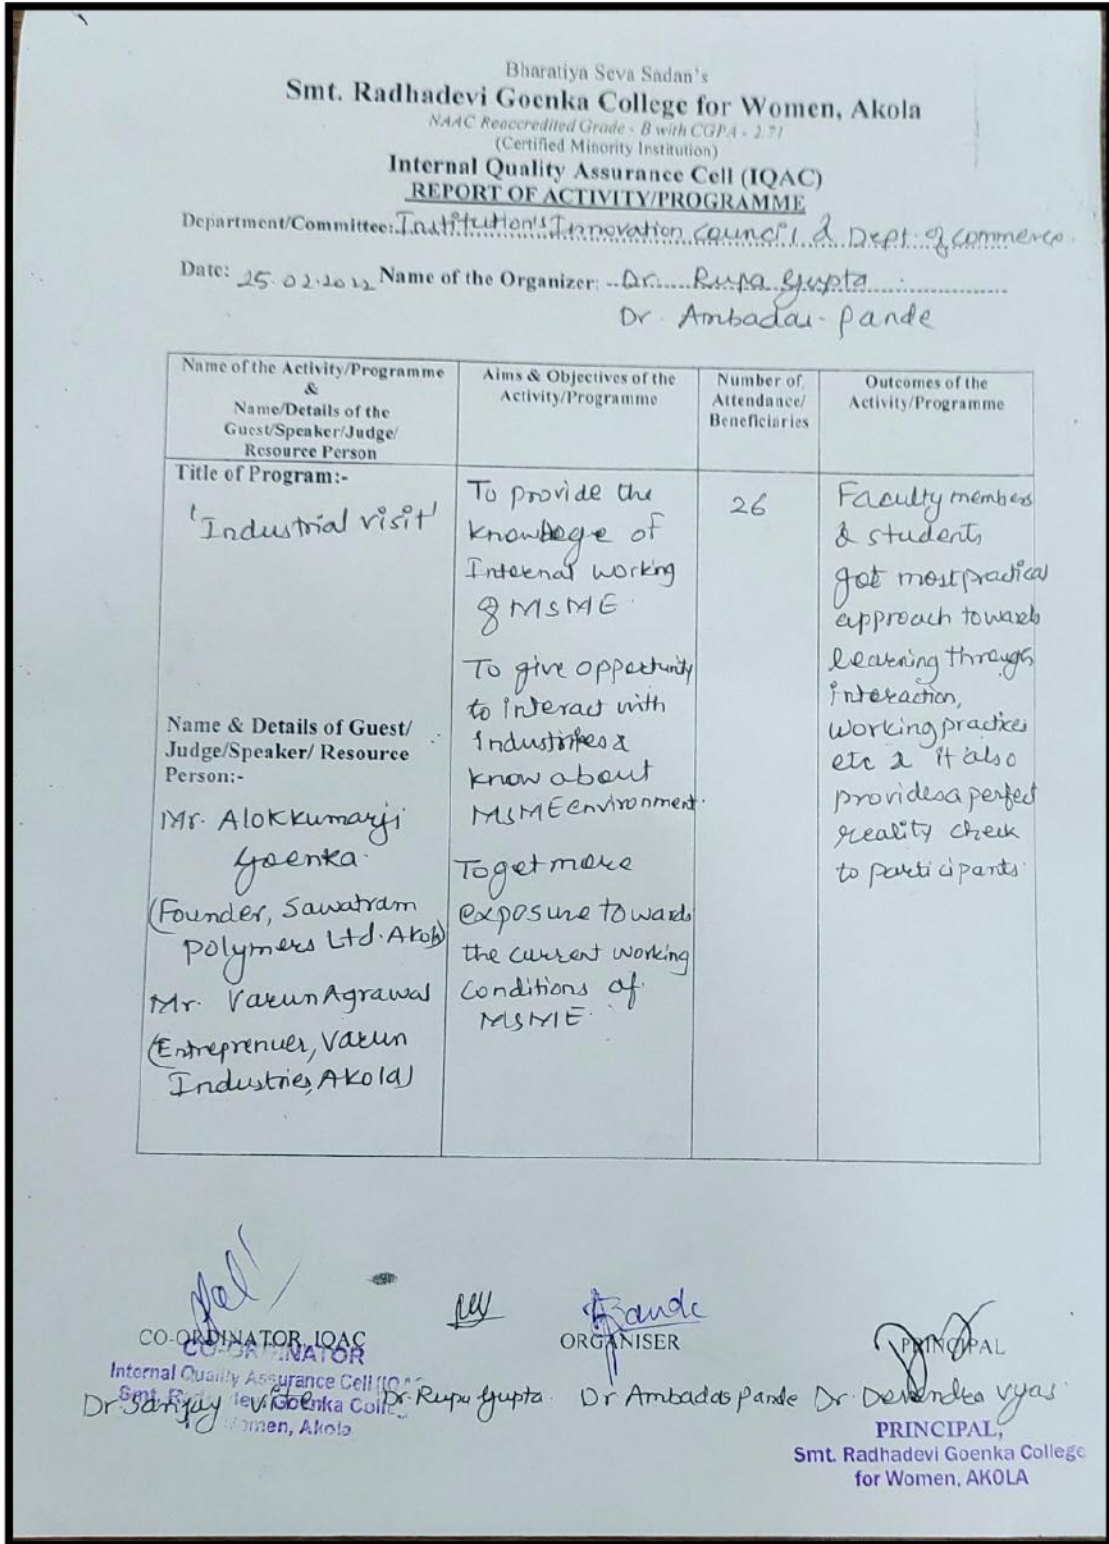 Bharatiya Seva Sadan's
Smt. Radhadevi Goenka College for Women, Akola
NAAC Reaccredited Grade - B with CGPA - 2.71
(Certified Minority Institution)
Internal Quality Assurance Cell (IQAC)
REPORT OF ACTIVITY/PROGRAMME
Department/Committee: Institution's Innovation Council & Dept. of commerce
Date: 25.02.2022 Name of the Organizer: Dr. Rupa Gupta
Dr. Ambadas Pande
Name of the Activity/Programme
&
Name/Details of the
Guest/Speaker/Judge/
Resource Person
Aims & Objectives of the
Activity/Programme
Number of
Attendance/
Beneficiaries
Outcomes of the
Activity/Programme
Title of Program:-
'Industrial visit'
Name & Details of Guest/
Judge/Speaker/ Resource
Person:-
Mr. Alokkumarji
Goenka.
(Founder, Sawatram
Polymers Ltd. Akola)
Mr. Varun Agrawal
(Entreprenuer, Varun
Industries, Akola)
To provide the
knowledge of
Internal working
of MSME.
To give opportunity
to interact with
Industries &
know about
MSME environment.
To get more
exposure towards
the current working
conditions of
MSME.
26
Faculty members
& students
got most practical
approach towards
learning through
interaction,
working practices
etc & it also
provides a perfect
reality check
to participants.
CO-ORDINATOR, IQAC
ORGANISER
PRINCIPAL
CO-ORDINATOR
Internal Quality Assurance Cell (IQAC
Smt. Radhadevi Goenka College
Women, Akola
Dr Sanjay Dr. Rupa Gupta. Dr Ambadas Pande Dr. Devendra Vyas
PRINCIPAL,
Smt. Radhadevi Goenka College
for Women, AKOLA